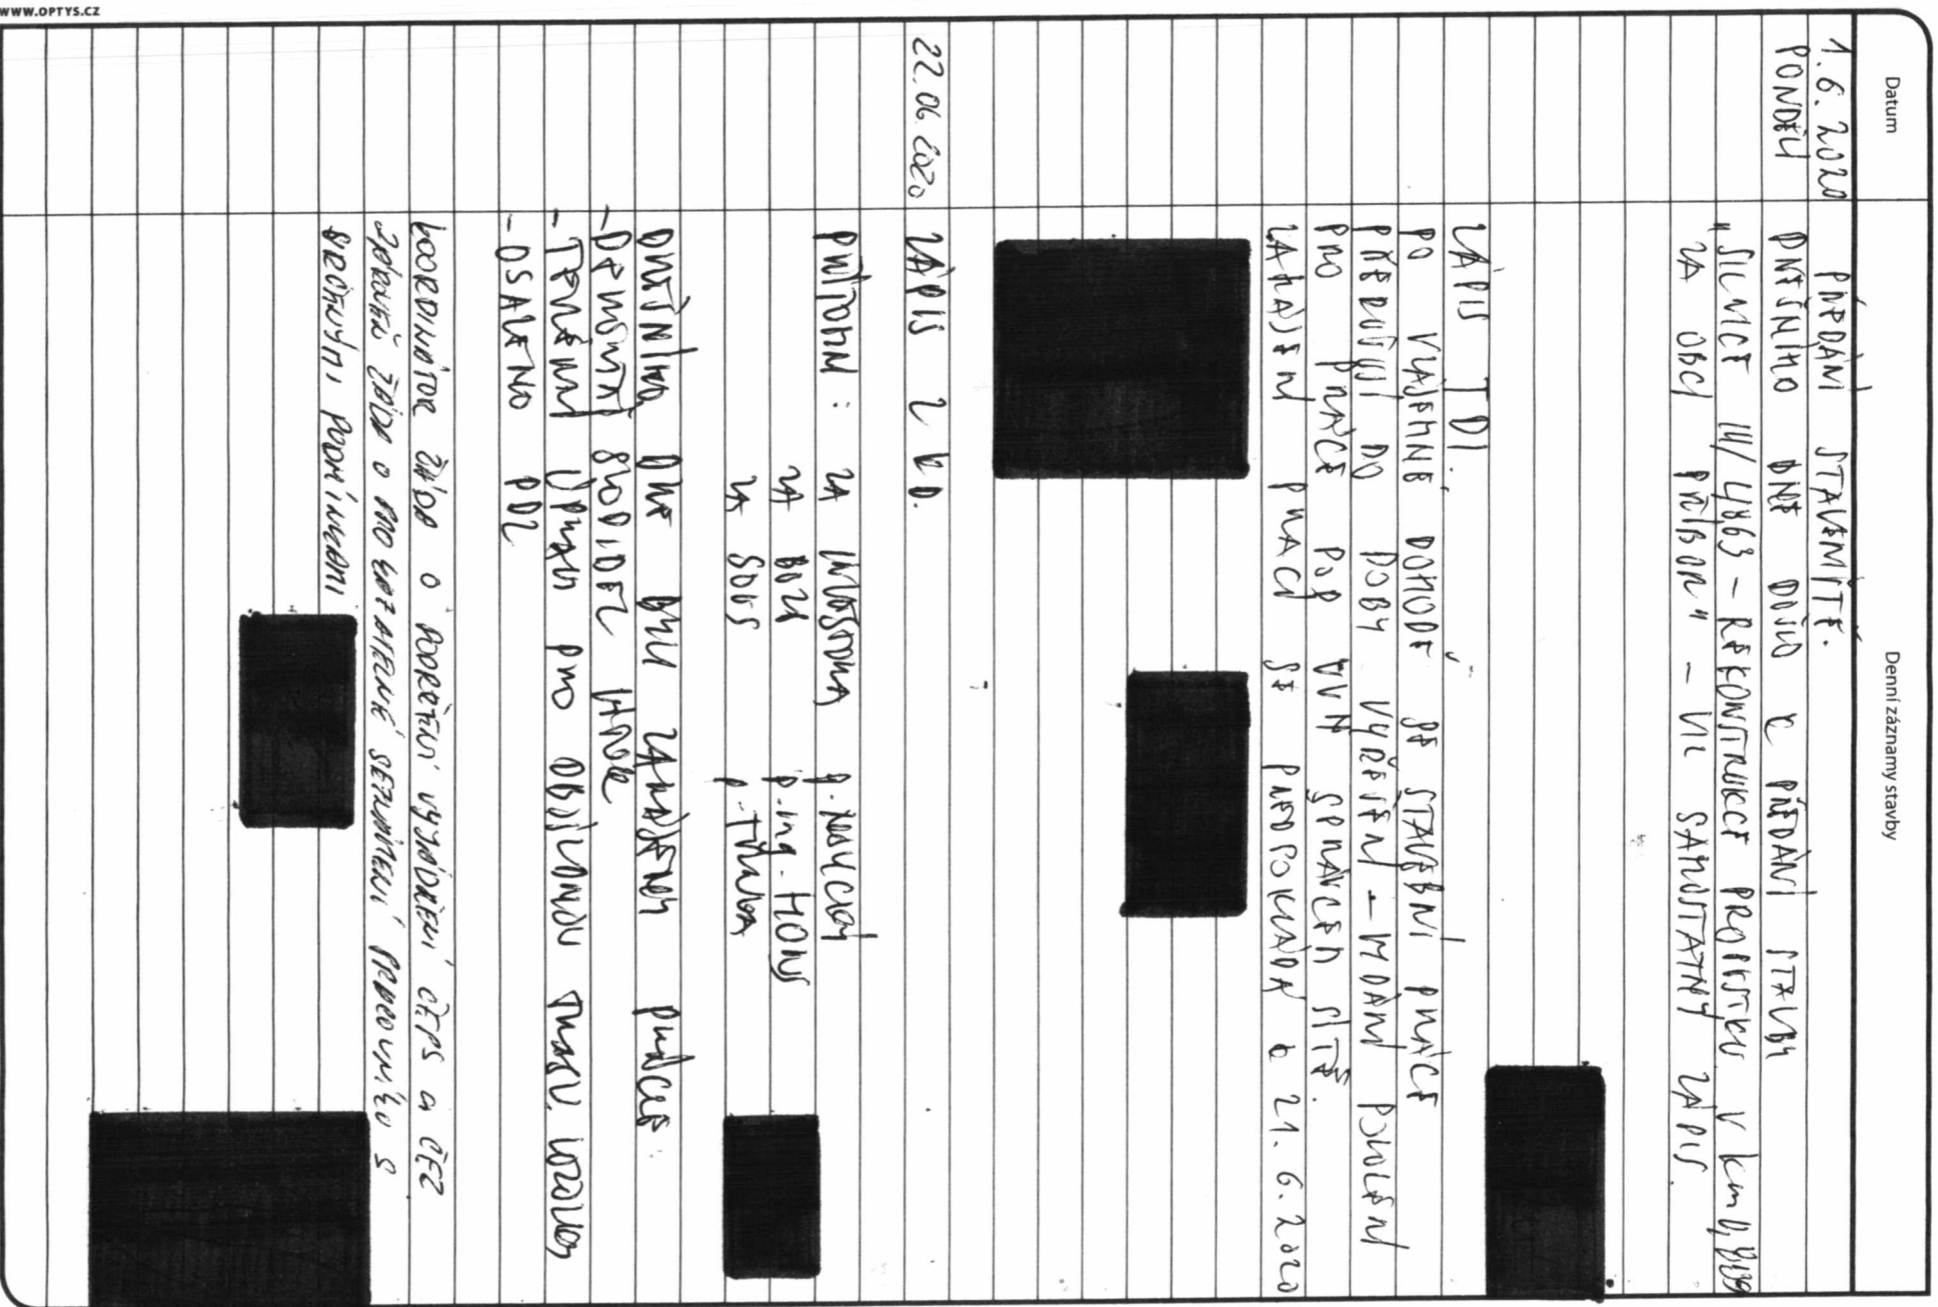 Datum
Denní záznamy stavby
1.6.2020 PŘEDÁNÍ STAVENIŠTĚ.
PONDĚLÍ DNEŠNÍHO DNE DOŠLO K PŘEDÁNÍ STAVBY
„SILNICE III/4863 - REKONSTRUKCE PROPUSTKU V km
ZA OBCÍ PŘÍBOR" - VIZ SAMOSTATNÝ ZÁPIS.
ZÁPIS TDI.
PO VZÁJEMNÉ DOHODĚ SE STAVEBNÍ PRÁCE
PŘERUŠUJÍ DO DOBY VYŘEŠENÍ - VYDÁNÍ POVOLENÍ
PRO PRÁCE POD VVN SPRÁVCEM SÍTĚ.
ZAHÁJENÍ PRACÍ SE PŘEDPOKLÁDÁ 21.6.2020
22.06.2020 ZÁPIS Z KD.
PŘÍTOMNI: ZA INVESTORA p.
ZA BOZP p. ing. HONS
ZA p.
DNEŠNÍHO DNE BYLY ZAHÁJENY PRÁCE.
- DEMONTÁŽ SVODIDEL
- TERÉNNÍ ÚPRAVY PRO OBJÍZDNOU TRASU
- OSAZENO PDZ
KOORDINÁTOR ŽÁDÁ O DOLOŽENÍ VYJÁDŘENÍ ČEPS a ČEZ
ŽÁDÁ O SEZNÁMENÍ PRACOVNÍKŮ S
PODMÍNKAMI
WWW.OPTYS.CZ